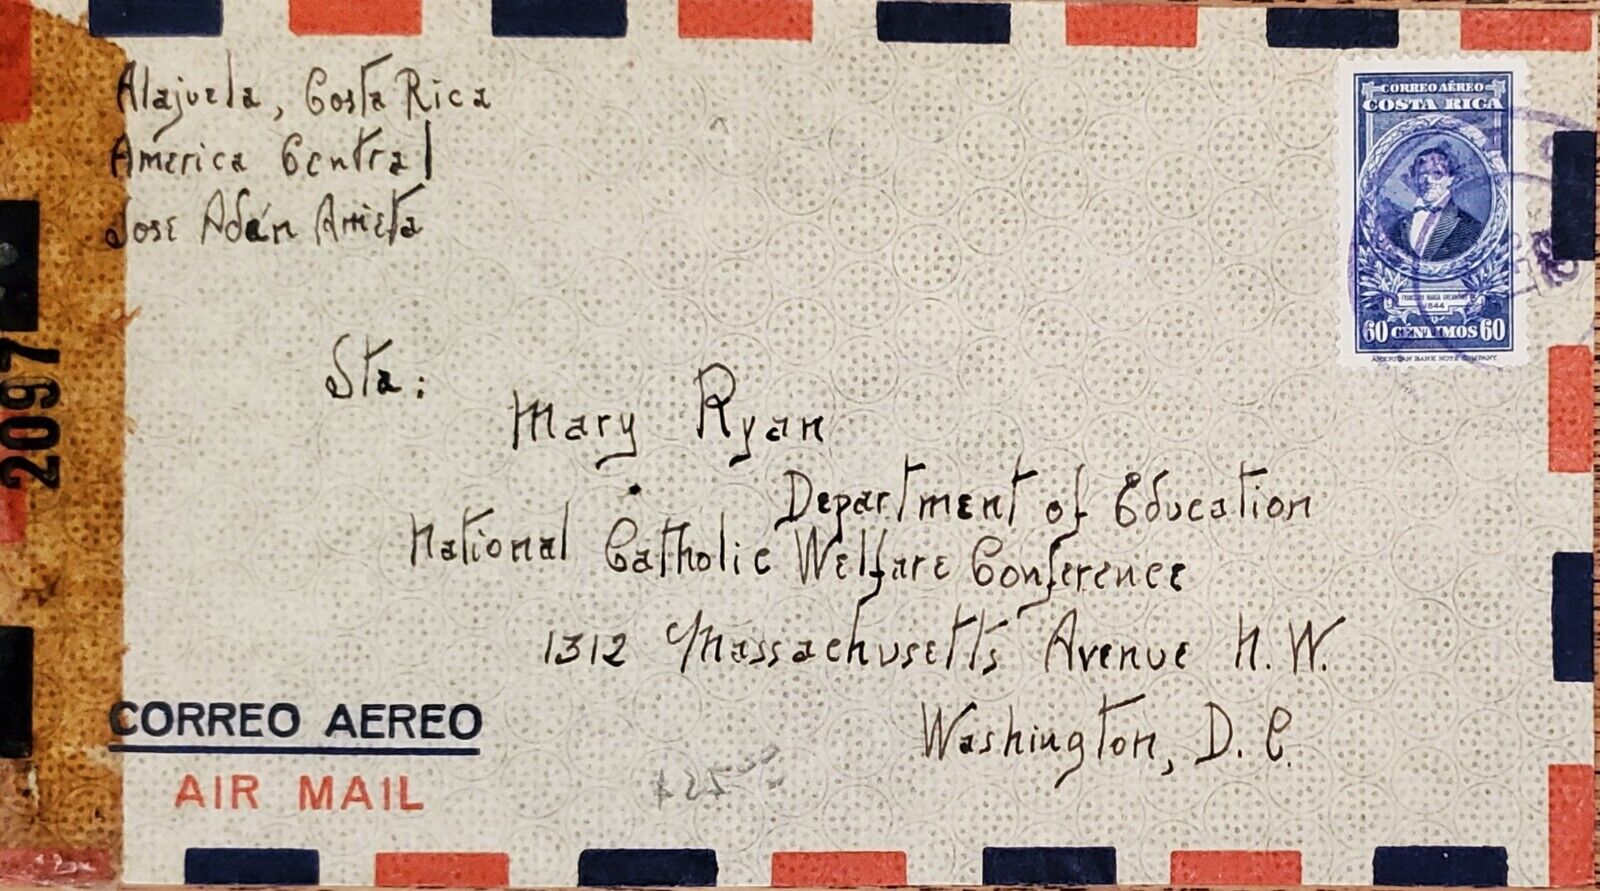 Alajuela, Costa Rica
America Central
Jose Adán Arrieta
CORREO AÉREO
COSTA RICA
FRANCISCO MARÍA OREAMUNO
1844
60 CÉNTIMOS 60
AMERICAN BANK NOTE COMPANY
2097
Sta:
Mary Ryan
Department of Education
National Catholic Welfare Conference
1312 Massachusetts Avenue N.W.
Washington, D.C.
CORREO AEREO
AIR MAIL